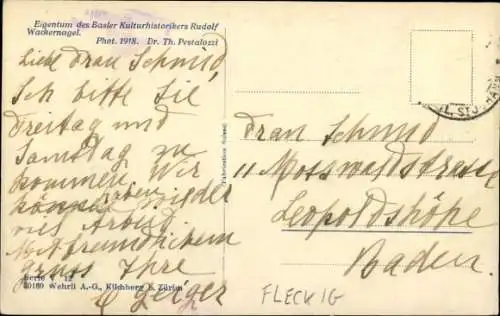 Eigentum des Basler Kulturhistorikers Rudolf
Wackernagel.
Phot. 1918. Dr. Th. Pestalozzi
Liebe Frau Schmid,
Ich bitte Sie
Freitag und
Samstag zu
kommen. Wir
haben wieder
viel Arbeit.
Mit freundlichem
Gruss Ihre
E Geiger
Serie
20169 Wehrli A.-G., Kilchberg b. Zürich
Frau Schmid
11 Mooswaldstrasse
Leopoldshöhe
Baden.
FLECKIG